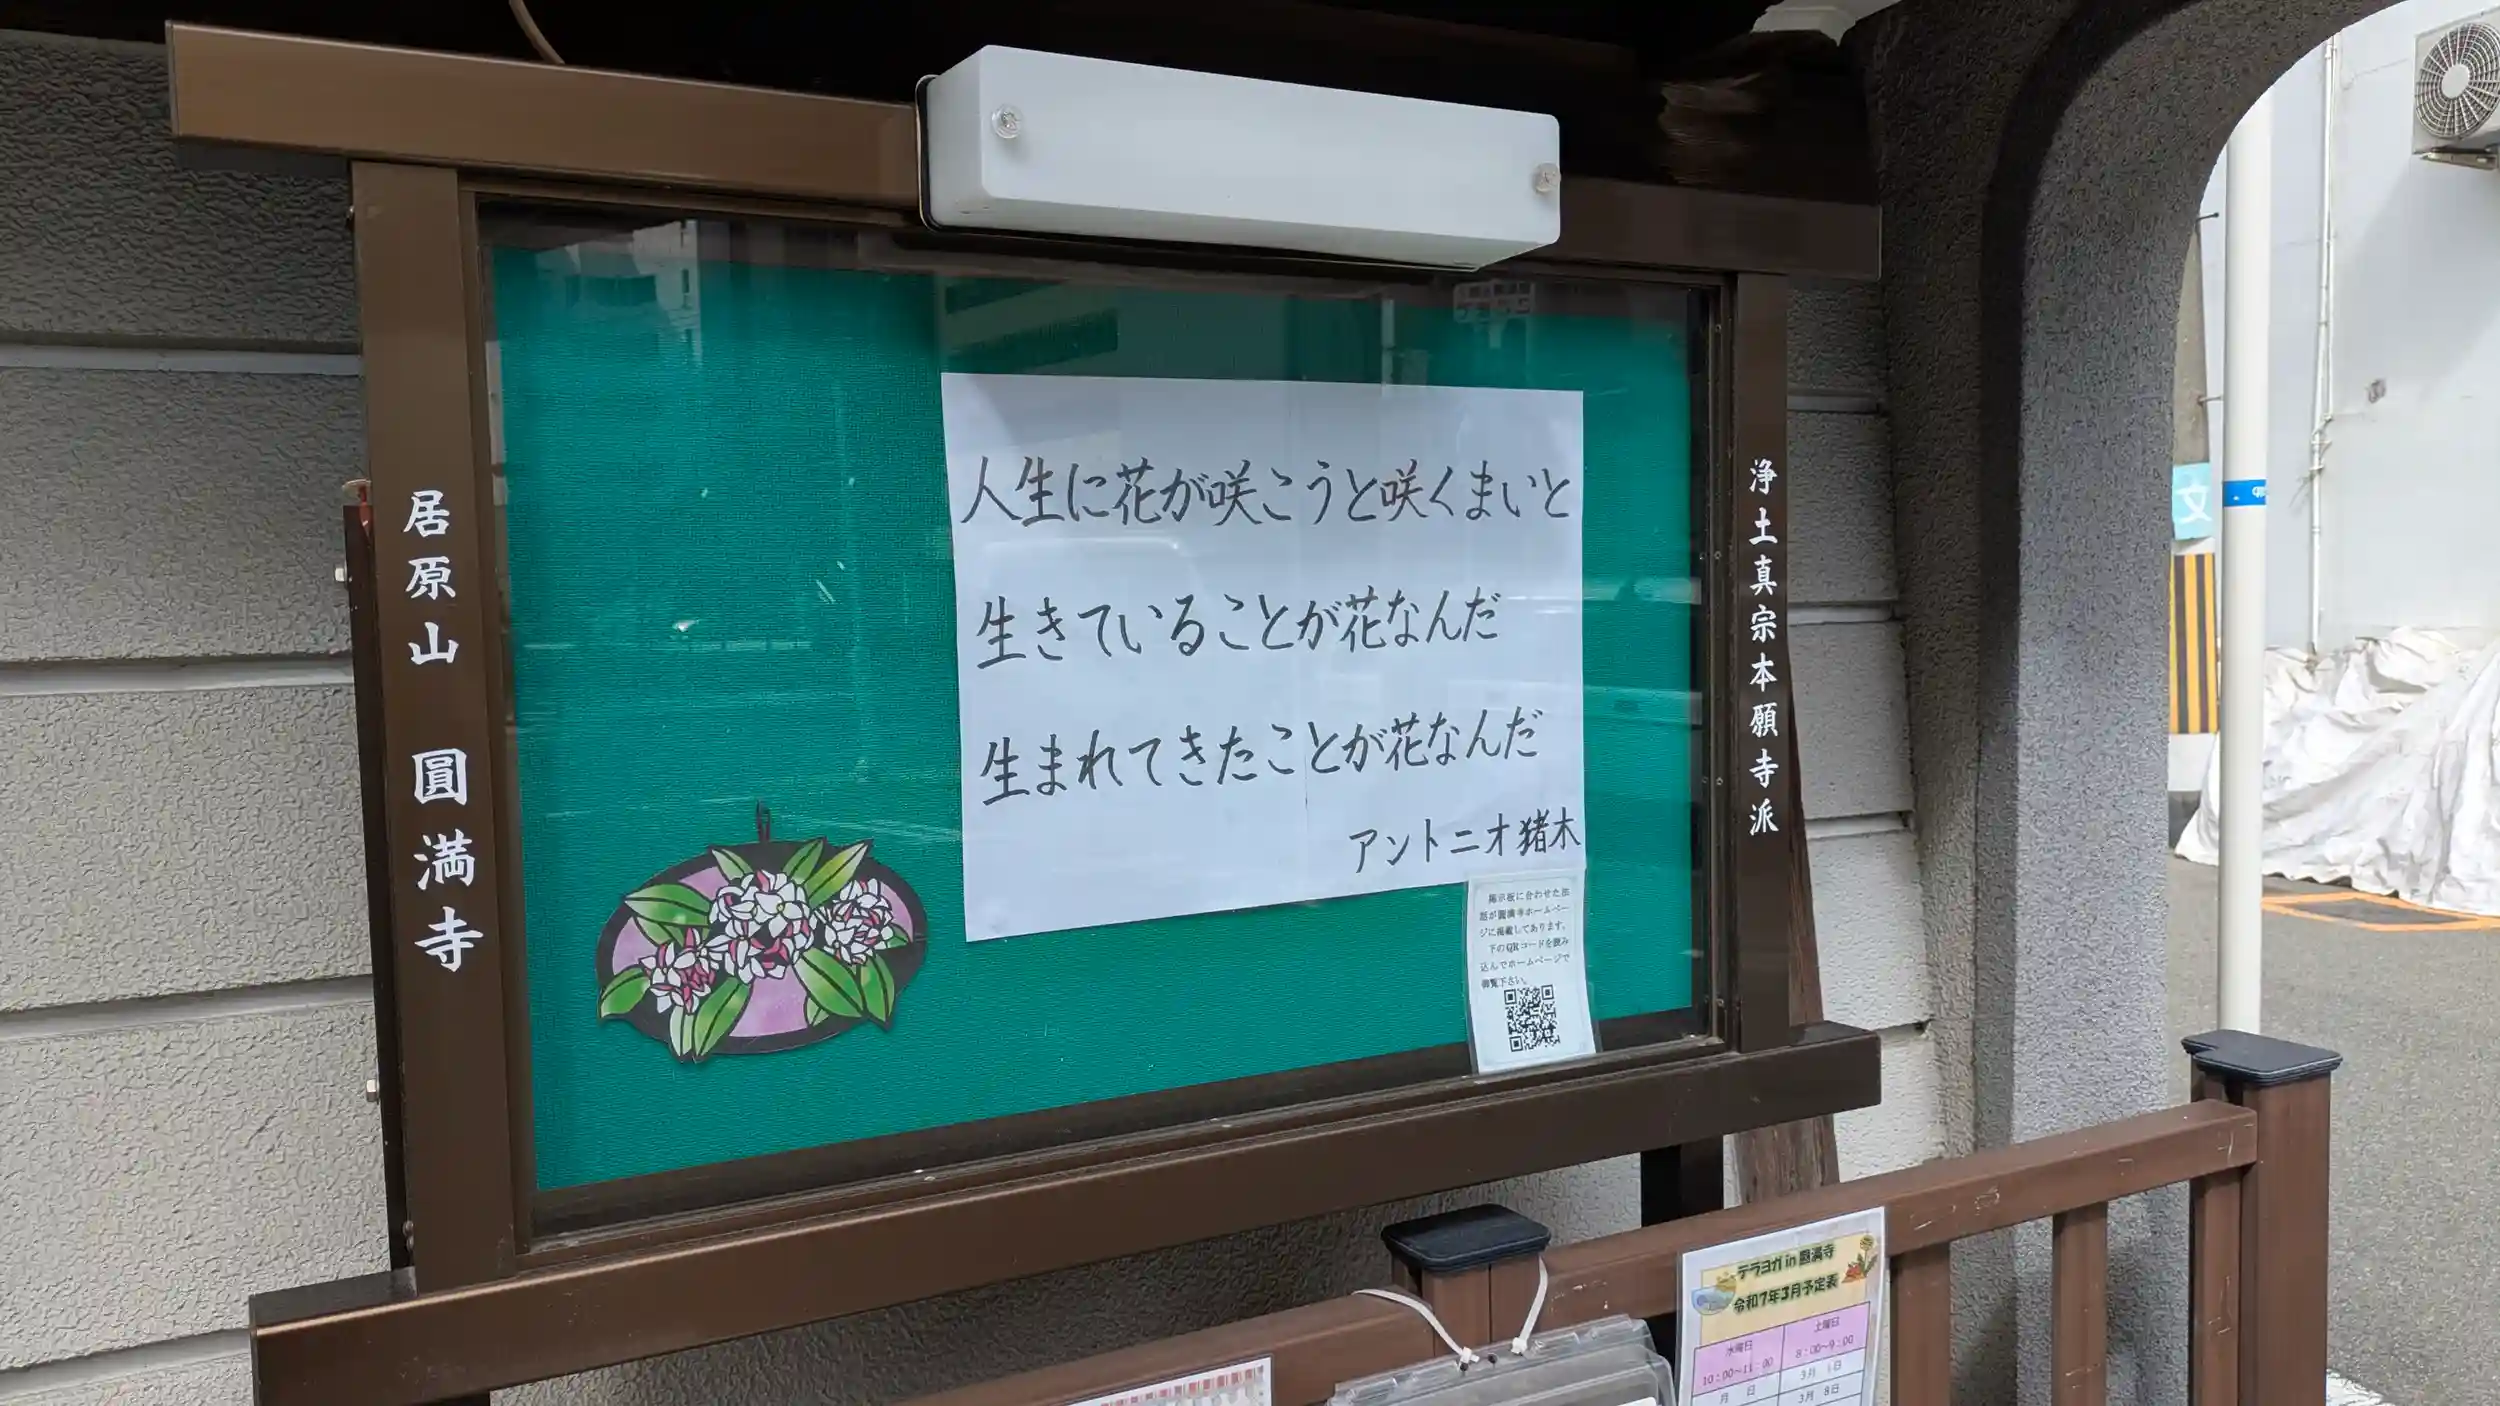 居原山 圓満寺
人生に花が咲こうと咲くまいと
生きていることが花なんだ
生まれてきたことが花なんだ
アントニオ猪木
掲示板に合わせた法
話が圓満寺ホームペー
ジに掲載してあります。
下のQRコードを読み
込んでホームページで
御覧下さい。
浄土真宗本願寺派
文
テラヨガin圓満寺
令和7年3月予定表
水曜日
10:00~11:00
月 日
土曜日
8:00~9:00
3月 1日
3月 8日